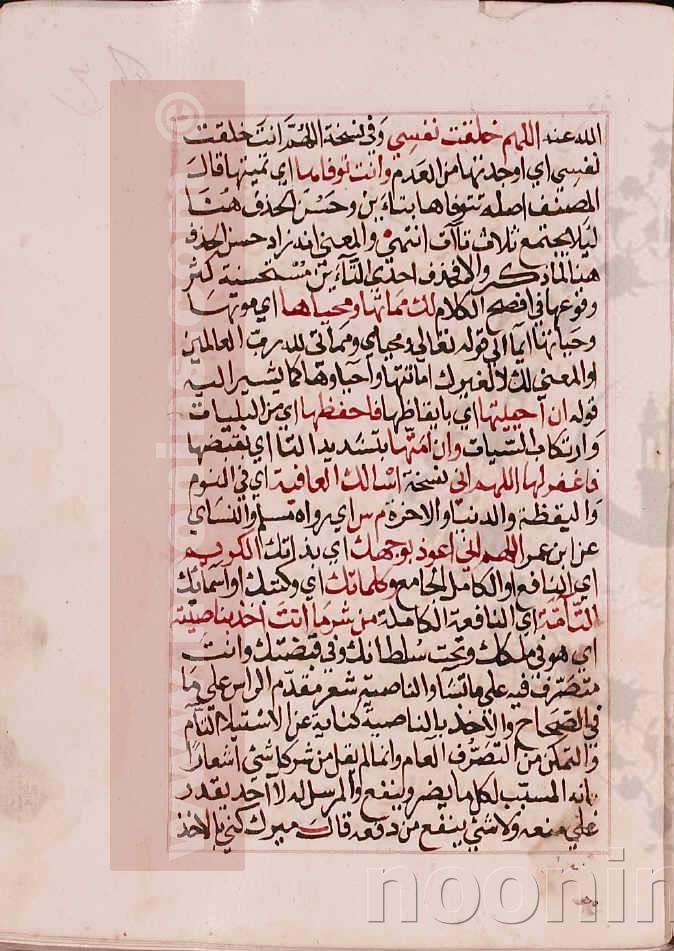 الله عنه اللهم خلقت نفسي وفي نسخة اللهم انت خلقت
نفسي اي اوجدتها من العدم وانت توفاها اي تميتها قال
المصنف اصله تتوفاها بتاءين وحسن الحذف هنا
ليلا يجتمع ثلاث تاآت انتهى والمعنى انه زاد حسن الحذف
هنا لما ذكر والا فحذف احدى التاءين مستحسنة كثر
وقوعها في افصح الكلام لك مماتها ومحياها اي موتها
وحياتها ايما الى قوله تعالى ومحياي ومماتي لله رب العالمين
او المعنى لك لا لغيرك اماتتها واحياوها كما يشير اليه
قوله ان احييتها اي بايقاظها فاحفظها اي من البليات
وارتكاب السيات وان امتها بتشديد التا اي تقبضها
فاغفر لها اللهم اني نسخة اسالك العافية اي في النوم
واليقظة والدنيا والاخرة م س اي رواه مسلم والنساي
عن ابن عمر اللهم اني اعوذ بوجهك اي بذاتك الكريم
اي النافع او الكامل الجامع وكلماتك اي وكتبك او اسمائك
التامة اي النافعة الكاملة من شر ما انت اخذ بناصيته
اي هو في ملكك وتحت سلطانك وفي قبضتك وانت
متصرف فيه على ما تشا والناصية شعر مقدم الراس على ما
في الصحاح والاخذ بالناصية كناية عن الاستيلا التام
والتمكن من التصرف العام وانما لم يقل من شر كل شي اشعارا
بانه المسبب لكل ما يضر وينفع والمرسل له لا احد يقدر
على منعه ولا شي ينفع من دفعه قال ميرك كني بالاخذ
noonin